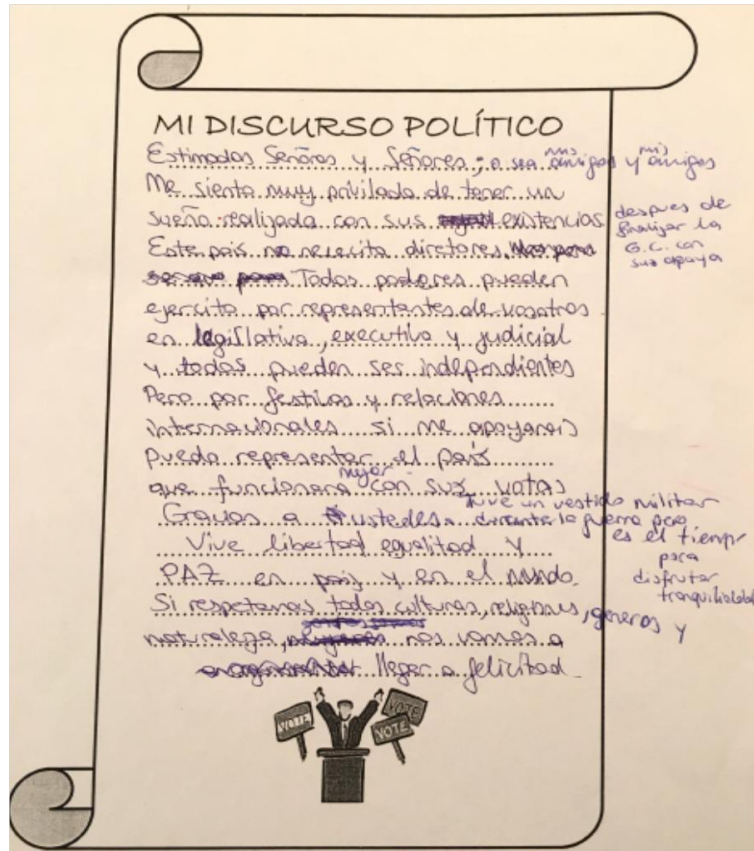 MI DISCURSO POLÍTICO
Estimados Señoras y Señores; o sea mis amigos y mis amigas
Me siento muy privilada de tener un
sueño realizado con sus existencias
despues de
finalizar la
G.C. con
sus apoyo
Este pais no nececita diretores
Todos poderes pueden
ejercito por representantes de vosotros
en legislativo, executivo y judicial
y todos pueden ser independientes
Pero por festivos y relaciones
internacionales si me apoyareis
puedo representar el país
que funcionara mejor con sus votos
Gracias a ustedes. Tuve un vestido militar
durante la guerra pero
es el tiempo
para
disfrutar
tranquilidad
Vive libertad egualitad y
PAZ en país y en el mundo.
Si respetamos todos culturas, religiones, generos y
naturaleza, nos vamos a
llegar a felicitad
VOTE
VOTE
VOTE